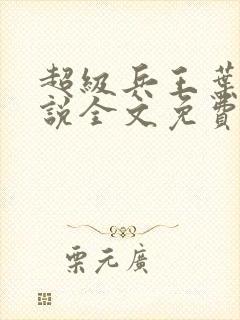 超級兵王葉
說全文免費
栗元廣